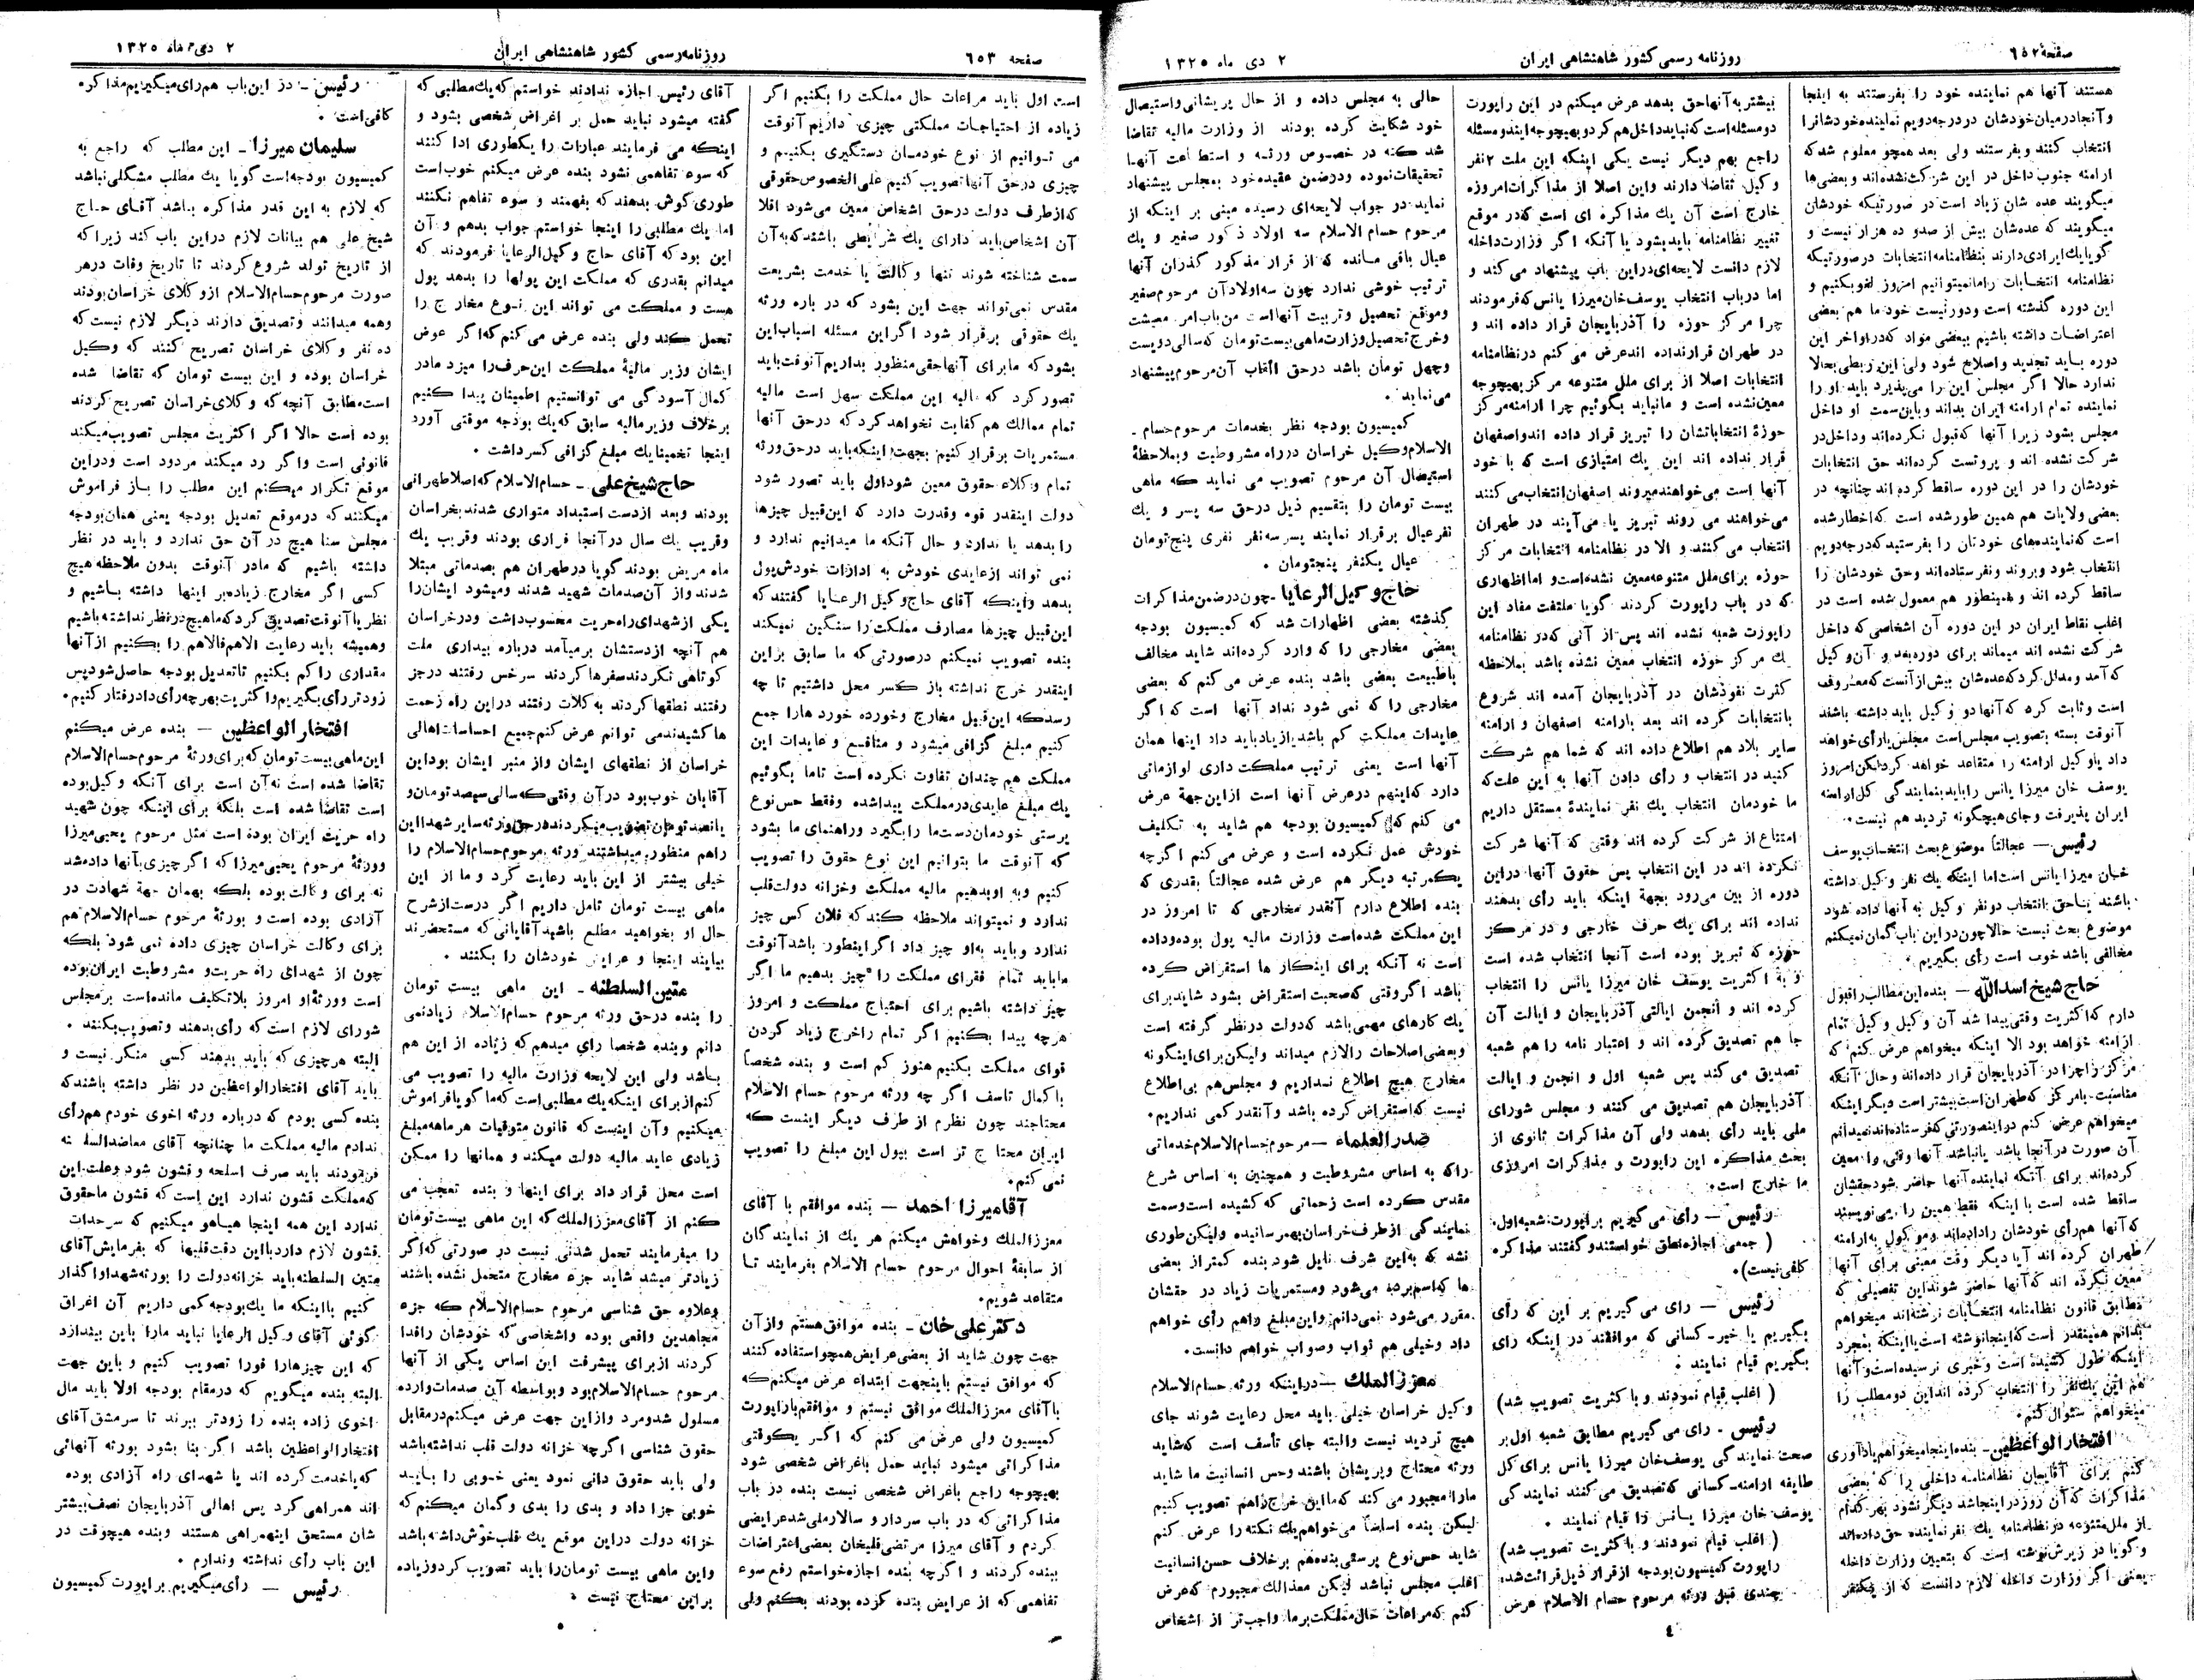 صفحهٔ ٦٥٢
روزنامه رسمی کشور شاهنشاهی ایران
٢ دی ماه ١٣٢٥
هستند آنها هم نماینده خود را بفرستند به اینجا
و آنجا درمیان خودشان در درجه دویم نماینده خودشانرا
انتخاب کنند و بفرستند ولی بعد همچو معلوم شد که
ارامنه جنوب داخل در این شرکت نشده‌اند و بعضی‌ها
میگویند عده شان زیاد است در صورتیکه خودشان
میگویند که عده‌شان بیش از صدو ده هزار نیست و
گویا یك ایرادی دارند بنظامنامه انتخابات در صورتیکه
نظامنامه انتخابات را ما نمیتوانیم امروز لغو بکنیم و
این دوره گذشته است و دور نیست خود ما هم بعضی
اعتراضات داشته باشیم ببعضی مواد که در اواخر این
دوره باید تجدید و اصلاح شود ولی این ربطی بحالا
ندارد حالا اگر مجلس این را می‌پذیرد باید او را
نماینده تمام ارامنه ایران بداند و باین سمت او داخل
مجلس بشود زیرا آنها که قبول نکرده‌اند و داخل در
شرکت نشده اند و پروتست کرده‌اند حق انتخابات
خودشان را در این دوره ساقط کرده‌اند چنانچه در
بعضی ولایات هم همین طور شده است که اخطار شده
است که نماینده‌های خودتان را بفرستید که درجه دویم
انتخاب شود و بروند و نفرستاده‌اند و حق خودشان را
ساقط کرده اند و همینطور هم معمول شده است در
اغلب نقاط ایران در این دوره آن اشخاصی که داخل
شرکت نشده اند میماند برای دوره بعد و آن وکیل
که آمد و مدلل کرد که عده‌شان بیش از آنست که معروف
است و ثابت کرد که آنها دو وکیل باید داشته باشند
آنوقت بسته بتصویب مجلس است مجلس یا رأی خواهد
داد یا وکیل ارامنه را متقاعد خواهد کرد لکن امروز
یوسف خان میرزا یانس را باید بنمایندگی کل ارامنه
ایران پذیرفت و جای هیچگونه تردید هم نیست.
رئیس — عجالتاً موضوع بحث انتخاب یوسف
خان میرزا یانس است اما اینکه یك نفر وکیل داشته
باشند یا حق انتخاب دو نفر وکیل به آنها داده شود
موضوع بحث نیست حالا چون در این باب گمان نمیکنم
مخالفی باشد خوب است رأی بگیریم.
حاج شیخ اسدالله — بنده این مطالب را قبول
دارم که اکثریت وقتی پیدا شد آن وکیل وکیل تمام
ارامنه خواهد بود الا اینکه میخواهم عرض کنم که
مرکز را چرا در آذربایجان قرار داده‌اند و حال آنکه
مناسبت با مرکز که طهران است بیشتر است دیگر اینکه
میخواهم عرض کنم در اینصورتی که فرستاده‌اند نمیدانم
آن صورت در آنجا باشد یا نباشد آنها وقتی را معین
کرده‌اند برای آنکه نماینده آنها حاضر شود حقشان
ساقط شده است با اینکه فقط همین را می‌نویسند
که آنها هم رأی خودشان را داده‌اند و موکول به ارامنه
طهران کرده اند آیا دیگر وقت معینی برای آنها
معین نکرده اند که آنها حاضر شوند این تفصیلی که
مطابق قانون نظامنامه انتخابات نرشته‌اند میخواهم
بدانم همینقدر است که اینجا نوشته است یا اینکه بمجرد
اینکه طول کشیده است و خبری نرسیده است و آنها
هم این یك نفر را انتخاب کرده اند این دو مطلب را
میخواهم سئوال کنم.
افتخارالواعظین — بنده اینجا میخواهم یادآوری
کنم برای آقایان نظامنامه داخلی را که بعضی
مذاکرات که آن روز در اینجا شد دیگر نشود بهر کدام
از ملل متنوعه در نظامنامه یك نفر نماینده حق داده‌اند
و گویا در زیرش نوشته است که بتعیین وزارت داخله
یعنی اگر وزارت داخله لازم دانست که از یکنفر
بیشتر به آنها حق بدهد عرض میکنم در این راپورت
دو مسئله است که نباید داخل هم کرد و بهیچوجه ایندو مسئله
راجع بهم دیگر نیست یکی اینکه این ملت ٢ نفر
وکیل تقاضا دارند و این اصلا از مذاکرات امروزه
خارج است آن یك مذاکره ای است که در موقع
تغییر نظامنامه باید بشود یا آنکه اگر وزارت داخله
لازم دانست لایحه‌ای در این باب پیشنهاد می کند و
اما در باب انتخاب یوسف خان میرزا یانس که فرمودند
چرا مرکز حوزه را آذربایجان قرار داده اند و
در طهران قرار نداده اند عرض می کنم در نظامنامه
انتخابات اصلا از برای ملل متنوعه مرکز بهیچوجه
معین نشده است و ما نباید بگوئیم چرا ارامنه مرکز
حوزهٔ انتخاباتشان را تبریز قرار داده اند و اصفهان
قرار نداده اند این یك امتیازی است که با خود
آنها است می‌خواهند میروند اصفهان انتخاب می کنند
می‌خواهند می روند تبریز یا می‌آیند در طهران
انتخاب می کنند و الا در نظامنامه انتخابات مرکز
حوزه برای ملل متنوعه معین نشده است و اما اظهاری
که در باب راپورت کردند گویا ملتفت مفاد این
راپورت شعبه نشده اند پس از آنی که در نظامنامه
یك مرکز حوزه انتخاب معین نشده باشد بملاحظه
کثرت نفوذشان در آذربایجان آمده اند شروع
بانتخابات کرده اند بعد بارامنه اصفهان و ارامنه
سایر بلاد هم اطلاع داده اند که شما هم شرکت
کنید در انتخاب و رأی دادن آنها به این علت که
ما خودمان انتخاب یك نفر نمایندهٔ مستقل داریم
امتناع از شرکت کرده اند وقتی که آنها شرکت
نکرده اند در این انتخاب پس حقوق آنها در این
دوره از بین می‌رود بجهة اینکه باید رأی بدهند
نداده اند برای یك حرف خارجی و در مرکز
حوزه که تبریز بوده است آنجا انتخاب شده است
و به اکثریت یوسف خان میرزا یانس را انتخاب
کرده اند و انجمن ایالتی آذربایجان و ایالت آن
جا هم تصدیق کرده اند و اعتبار نامه را هم شعبه
تصدیق می کند پس شعبه اول و انجمن و ایالت
آذربایجان هم تصدیق می کنند و مجلس شورای
ملی باید رأی بدهد ولی آن مذاکرات ثانوی از
بحث مذاکره این راپورت و مذاکرات امروزی
ما خارج است.
رئیس — رأی می گیریم براپورت شعبه اول.
( جمعی اجازه نطق خواستند و گفتند مذاکره
کافی نیست).
رئیس — رای می گیریم بر این که رأی
بگیریم یا خیر - کسانی که موافقند در اینکه رای
بگیریم قیام نمایند .
( اغلب قیام نمودند و با کثریت تصویب شد)
رئیس - رای می گیریم مطابق شعبه اول بر
صحت نمایندگی یوسف خان میرزا یانس برای کل
طایفه ارامنه - کسانی که تصدیق می کنند نمایندگی
یوسف خان میرزا یانس را قیام نمایند .
( اغلب قیام نمودند و با کثریت تصویب شد)
راپورت کمیسیون بودجه از قرار ذیل قرائت شد:
چندی قبل ورثه مرحوم حسام الاسلام عرض
٤
حالی به مجلس داده و از حال پریشانی و استیصال
خود شکایت کرده بودند از وزارت مالیه تقاضا
شد که در خصوص ورثه و استطاعت آنها
تحقیقات نموده و در ضمن عقیده خود بمجلس پیشنهاد
نماید در جواب لایحه‌ای رسیده مبنی بر اینکه از
مرحوم حسام الاسلام سه اولاد ذکور صغیر و یك
عیال باقی مانده که از قرار مذکور گذران آنها
ترتیب خوشی ندارد چون سه اولاد آن مرحوم صغیر
و موقع تحصیل و تربیت آنها است من باب امر معیشت
و خرج تحصیل وزارت ماهی بیست تومان که سالی دویست
و چهل تومان باشد در حق القاب آن مرحوم پیشنهاد
می نماید .
کمیسیون بودجه نظر بخدمات مرحوم حسام -
الاسلام وکیل خراسان در راه مشروطیت و بملاحظهٔ
استیصال آن مرحوم تصویب می نماید که ماهی
بیست تومان را بتقسیم ذیل در حق سه پسر و یك
نفر عیال برقرار نمایند پسر سه نفر نفری پنج تومان
عیال یکنفر پنجتومان .
حاج وکیل الرعایا - چون در ضمن مذاکرات
گذشته بعضی اظهارات شد که کمیسیون بودجه
بعضی مخارجی را که وارد کرده‌اند شاید مخالف
با طبیعت بعضی باشد بنده عرض می کنم که بعضی
مخارجی را که نمی شود نداد آنها است که اگر
عایدات مملکت کم باشد یا زیاد باید داد اینها همان
آنها است یعنی ترتیب مملکت داری لوازماتی
دارد که اینهم در عرض آنها است از این جهة عرض
می کنم که کمیسیون بودجه هم شاید به تکلیف
خودش عمل نکرده است و عرض می کنم اگرچه
یک‌مرتبه دیگر هم عرض شده عجالتاً بقدری که
بنده اطلاع دارم آنقدر مخارجی که تا امروز در
این مملکت شده است وزارت مالیه پول بوده و داده
است نه آنکه برای اینکار ها استقراض کرده
باشد اگر وقتی که صحبت استقراض بشود شاید برای
یك کارهای مهمی باشد که دولت در نظر گرفته است
و بعضی اصلاحات را لازم میداند ولیکن برای اینگونه
مخارج هیچ اطلاع نداریم و مجلس هم بی اطلاع
نیست که استقراض کرده باشد و آنقدر کمی نداریم.
صدرالعلماء — مرحوم حسام الاسلام خدماتی
را که به اساس مشروطیت و همچنین به اساس شرع
مقدس کرده است زحماتی که کشیده است و سمت
نمایندگی از طرف خراسان بهمرسانیده ولیکن طوری
نشد که به این شرف نایل شود بنده کمتر از بعضی
ها که اسم برده می‌شود و مستمریات زیاد در حقشان
مقرر می‌شود نمی‌دانم و این مبلغ را هم رأی خواهم
داد و خیلی هم ثواب و صواب خواهم دانست.
معززالملك — در اینکه ورثه حسام الاسلام
وکیل خراسان خیلی باید محل رعایت شوند جای
هیچ تردید نیست و البته جای تأسف است که شاید
ورثه محتاج و پریشان باشند و حس انسانیت ما شاید
مارا مجبور می کند که ما این خرج را هم تصویب کنیم
لیکن بنده اساساً می‌خواهم یك نکته را عرض کنم
شاید حس نوع پرستی بنده هم برخلاف حسن انسانیت
اغلب مجلس نباشد لیکن معذالك مجبورم که عرض
کنم که مراعات حال مملکت بر ما واجب‌تر از اشخاص
صفحه ٦٥٣
روزنامه رسمی کشور شاهنشاهی ایران
٢ دی ماه ١٣٢٥
است اول باید مراعات حال مملکت را بکنیم اگر
زیاده از احتیاجات مملکتی چیزی داریم آنوقت
می توانیم از نوع خودمان دستگیری بکنیم و
چیزی در حق آنها تصویب کنیم علی الخصوص حقوقی
که از طرف دولت در حق اشخاص معین می‌شود اقلا
آن اشخاص باید دارای یك شرایطی باشند که به آن
سمت شناخته شوند تنها وکالت یا خدمت بشریعت
مقدس نمی‌تواند جهت این بشود که در باره ورثه
یك حقوقی برقرار شود اگر این مسئله اسباب این
بشود که ما برای آنها حقی منظور بداریم آنوقت باید
تصور کرد که مالیه این مملکت سهل است مالیه
تمام ممالك هم کفایت نخواهد کرد که در حق آنها
مستمریات برقرار کنیم بجهت اینکه باید در حق ورثه
تمام وکلاء حقوق معین شود اول باید تصور شود
دولت اینقدر قوه و قدرت دارد که این قبیل چیزها
را بدهد یا ندارد و حال آنکه ما میدانیم ندارد و
نمی تواند از عایدی خودش به ادارات خودش پول
بدهد و اینکه آقای حاج وکیل الرعایا گفتند که
این قبیل چیزها مصارف مملکت را سنگین نمیکند
بنده تصویب نمیکنم در صورتی که ما سابق بر این
اینقدر خرج نداشته باز کسر محل داشتیم تا چه
رسد که این قبیل مخارج و خورده خورد هارا جمع
کنیم مبلغ گزافی میشرد و منافع و عایدات این
مملکت هم چندان تفاوت نکرده است تا ما بگوئیم
یك مبلغ عایدی در مملکت پیدا شده و فقط حس نوع
پرستی خودمان دست ما را بگیرد و راهنمای ما بشود
که آنوقت ما بتوانیم این نوع حقوق را تصویب
کنیم و به او بدهیم مالیه مملکت و خزانه دولت قلب
ندارد و نمیتواند ملاحظه کند که فلان کس چیز
ندارد و باید به او چیز داد اگر اینطور باشد آنوقت
ما باید تمام فقرای مملکت را چیز بدهیم ما اگر
چیز داشته باشیم برای احتیاج مملکت و امروز
هرچه پیدا بکنیم اگر تمام را خرج زیاد کردن
قوای مملکت بکنیم هنوز کم است و بنده شخصاً
با کمال تاسف اگر چه ورثه مرحوم حسام الاسلام
محتاجند چون نظرم از طرف دیگر اینست که
ایران محتاج تر است بپول این مبلغ را تصویب
نمی کنم.
آقا میرزا احمد — بنده موافقم با آقای
معززالملك و خواهش میکنم هر یك از نمایندگان
از سابقهٔ احوال مرحوم حسام الاسلام بفرمایند تا
متقاعد شویم.
دکتر علی خان - بنده موافق هستم و از آن
جهت چون شاید از بعضی عرایض همچو استفاده کنند
که موافق نیستم باینجهت ابتداء عرض میکنم که
با آقای معززالملك موافق نیستم و موافقم با راپورت
کمیسیون ولی عرض می کنم که اگر یکوقتی
مذاکراتی میشود نباید حمل باغراض شخصی شود
بهیچوجه راجع باغراض شخصی نیست بنده در باب
مذاکراتی که در باب سردار و سالار ملی شد عرایضی
کردم و آقای میرزا مرتضی قلیخان بعضی اعتراضات
ببنده کردند و اگرچه بنده اجازه خواستم رفع سوء
تفاهمی که از عرایض بنده کرده بودند بکنم ولی
آقای رئیس اجازه ندادند خواستم که یك مطلبی که
گفته میشود نباید حمل بر اغراض شخصی بشود و
اینکه می فرمایند عبارات را یکطوری ادا کنند
که سوء تفاهمی نشود بنده عرض میکنم خوب است
طوری گوش بدهند که بفهمند و سوء تفاهم نکنند
اما یك مطلبی را اینجا خواستم جواب بدهم و آن
این بود که آقای حاج وکیل الرعایا فرمودند که
میدانم بقدری که مملکت این پولها را بدهد پول
هست و مملکت می تواند این نوع مخارج را
تحمل کند ولی بنده عرض می کنم که اگر عوض
ایشان وزیر مالیهٔ مملکت این حرف را میزد مادر
کمال آسودگی می توانستیم اطمینان پیدا کنیم
برخلاف وزیر مالیه سابق که یك بودجه موقتی آورد
اینجا تخمینا یك مبلغ گزافی کسر داشت .
حاج شیخ علی - حسام الاسلام که اصلا طهرانی
بودند و بعد از دست استبداد متواری شدند بخراسان
و قریب یك سال در آنجا فراری بودند و قریب یك
ماه مریض بودند گویا در طهران هم بصدماتی مبتلا
شدند و از آن صدمات شهید شدند و میشود ایشان را
یکی از شهدای راه حریت محسوب داشت و در خراسان
هم آنچه از دستشان برمیآمد درباره بیداری ملت
کوتاهی نکردند سفرها کردند سرخس رفتند درجز
رفتند نطقها کردند به کلات رفتند در این راه زحمت
ها کشیدند می توانم عرض کنم جمیع احساسات اهالی
خراسان از نطقهای ایشان و از منبر ایشان بود این
آقایان خوب بود در آن وقتی که سالی سیصد تومان و
پانصد تومان تصویب میکردند در حق ورثه سایر شهدا این
را هم منظور میداشتند ورثه مرحوم حسام الاسلام را
خیلی بیشتر از این باید رعایت کرد و ما از این
ماهی بیست تومان تامل داریم اگر درست از شرح
حال او بخواهید مطلع باشید آقایانی که مستحضرند
بیایند اینجا و عرایض خودشان را بکنند .
متین السلطنه - این ماهی بیست تومان
را بنده در حق ورثه مرحوم حسام الاسلام زیاد نمی
دانم و بنده شخصا رای میدهم که زیاده از این هم
باشد ولی این لایحه وزارت مالیه را تصویب می
کنم از برای اینکه یك مطلبی است که ما گویا فراموش
میکنیم و آن اینست که قانون متوفیات هر ماهه مبلغ
زیادی عاید مالیه دولت میکند و همانها را ممکن
است محل قرار داد برای اینها و بنده تعجب می
کنم از آقای معززالملك که این ماهی بیست تومان
را میفرمایند تحمل شدنی نیست در صورتی که اگر
زیادتر میشد شاید جزء مخارج متحمل نشده باشند
و علاوه حق شناسی مرحوم حسام الاسلام که جزء
مجاهدین واقعی بوده و اشخاصی که خودشان رافدا
کردند از برای پیشرفت این اساس یکی از آنها
مرحوم حسام الاسلام بود و بواسطه آین صدمات وارده
مسلول شد و مرد و از این جهت عرض میکنم در مقابل
حقوق شناسی اگرچه خزانه دولت قلب نداشته باشد
ولی باید حقوق دانی نمود یعنی خوبی را باید
خوبی جزا داد و بدی را بدی و گمان میکنم که
خزانه دولت در این موقع یك قلب خوش داشته باشد
و این ماهی بیست تومان را باید تصویب کرد و زیاده
بر این محتاج نیست .
٥
رئیس — در این باب هم رای میگیریم مذاکره
کافی است .
سلیمان میرزا — این مطلب که راجع به
کمیسیون بودجه است گویا یك مطلب مشکلی نباشد
که لازم به این قدر مذاکره باشد آقای حاج
شیخ علی هم بیانات لازم در این باب کند زیرا که
از تاریخ تولد شروع کردند تا تاریخ وفات در هر
صورت مرحوم حسام الاسلام از وکلای خراسان بودند
و همه میدانند و تصدیق دارند دیگر لازم نیست که
ده نفر وکلای خراسان تصریح کنند که وکیل
خراسان بوده و این بیست تومان که تقاضا شده
است مطابق آنچه که وکلای خراسان تصریح کردند
بوده است حالا اگر اکثریت مجلس تصویب میکند
قانونی است و اگر رد میکند مردود است و در این
موقع تکرار میکنم این مطلب را باز فراموش
میکنند که در موقع تعدیل بودجه یعنی همان بودجه
مجلس سنا هیچ در آن حق ندارد و باید در نظر
داشته باشیم که مادر آنوقت بدون ملاحظه هیچ
کسی اگر مخارج زیاده بر اینها داشته باشیم و
نظر یا آنوقت تصدیق کرد که ما هیچ در نظر نداشته باشیم
و همیشه باید رعایت الاهم فالاهم را بکنیم از آنها
مقداری را کم بکنیم تا تعدیل بودجه حاصل شود پس
زودتر رأی بگیریم و اکثریت بهرچه رأی داد رفتار کنیم.
افتخارالواعظین — بنده عرض میکنم
این ماهی بیست تومان که برای ورثهٔ مرحوم حسام الاسلام
تقاضا شده است نه آن است برای آنکه وکیل بوده
است تقاضا شده است بلکه برای اینکه چون شهید
راه حریت ایران بوده است مثل مرحوم یحیی میرزا
و ورثهٔ مرحوم یحیی میرزا که اگر چیزی بآنها داده شد
نه برای وکالت بوده بلکه بهمان جهة شهادت در
آزادی بوده است و بورثهٔ مرحوم حسام الاسلام هم
برای وکالت خراسان چیزی داده نمی شود بلکه
چون از شهدای راه حریت و مشروطیت ایران بوده
است و ورثهٔ او امروز بلاتکلیف مانده‌است بر مجلس
شورای لازم است که رأی بدهند و تصویب بکنند .
البته هر چیزی که باید بدهند کسی منکر نیست و
باید آقای افتخارالواعظین در نظر داشته باشند که
بنده کسی بودم که درباره ورثه اخوی خودم هم رأی
ندادم مالیه مملکت ما چنانچه آقای معاضد السلطنه
فرمودند باید صرف اسلحه و قشون شود و علت این
که مملکت قشون ندارد این است که قشون ما حقوق
ندارد این همه اینجا هیاهو میکنیم که سرحدات
قشون لازم دارد با این دقت قلبها که بفرمایش آقای
متین السلطنه باید خزانه دولت را بورثه شهدا واگذار
کنیم با اینکه ما یك بودجه کمی داریم آن اغراق
گوئی آقای وکیل الرعایا نباید مارا باین بیندازد
که این چیزهارا فورا تصویب کنیم و باین جهت
البته بنده میگویم که در مقام بودجه اولا باید مال
اخوی زاده بنده را زودتر ببرند تا سر مشق آقای
افتخارالواعظین باشد اگر بنا بشود بورثه آنهائی
که یا خدمت کرده اند یا شهدای راه آزادی بوده
اند همراهی کرد پس اهالی آذربایجان نصف بیشتر
شان مستحق اینهمراهی هستند و بنده هیچوقت در
این باب رأی نداشته و ندارم .
رئیس — رأی میگیریم براپورت کمیسیون